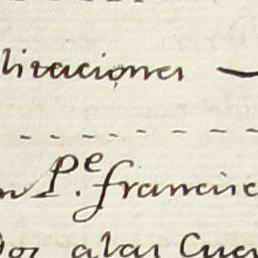 litaciones
n P.e francisc
dos alas Cuen